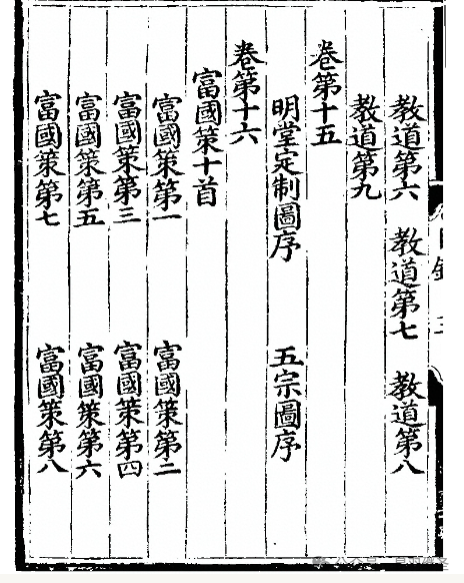 教道第六 教道第七 教道第八
教道第九
卷第十五
明堂定制圖序 五宗圖序
卷第十六
富國策十首
富國策第一 富國策第二
富國策第三 富國策第四
富國策第五 富國策第六
富國策第七 富國策第八